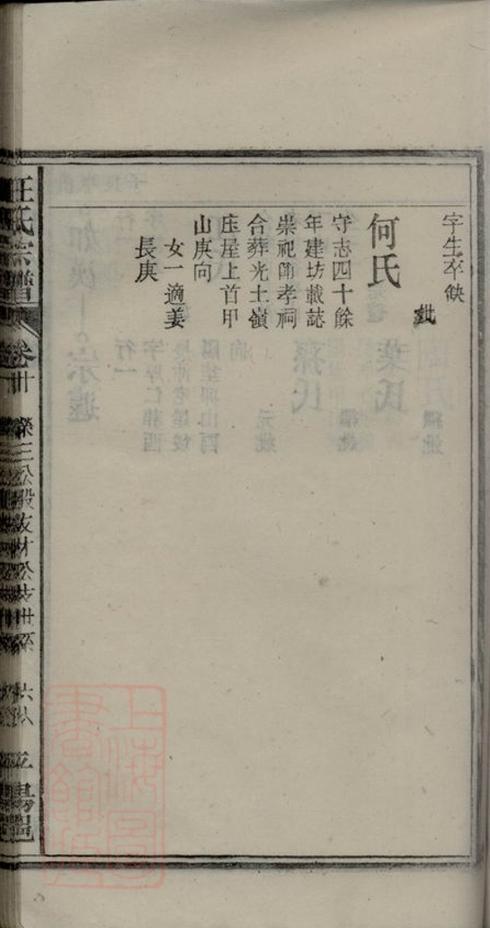 字生卒缺
何氏
守志四十餘
年建坊載誌
崇祀節孝祠
合葬光土嶺
庄屋上首甲
山庚向
女一適姜
長庚
汪氏宗譜
卷廿
上海圖書館藏